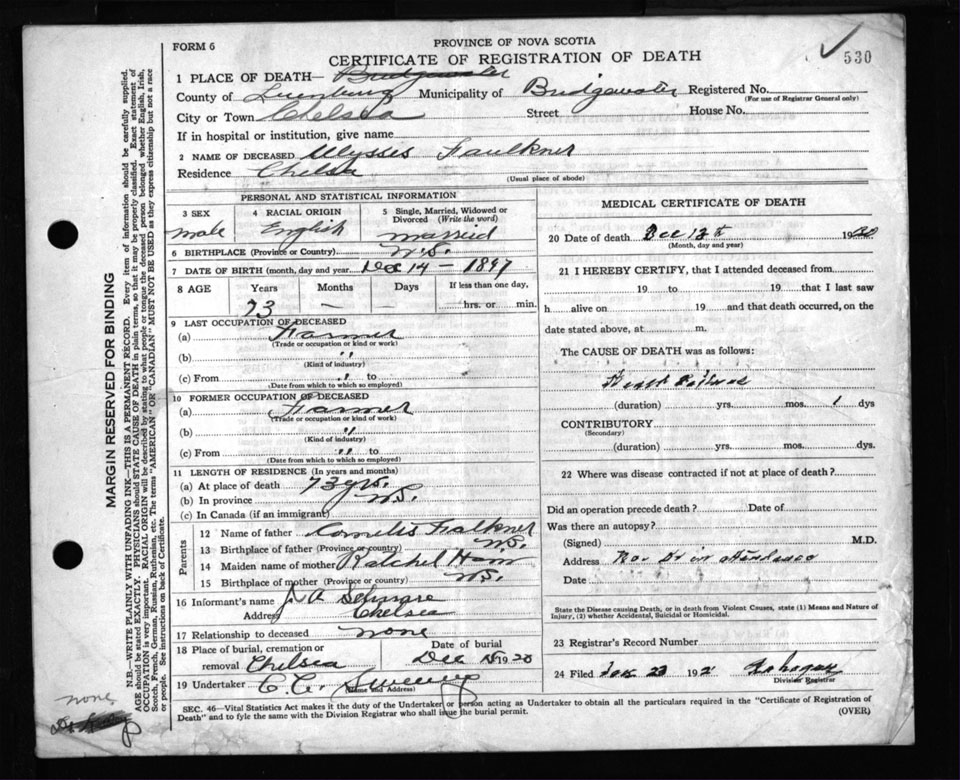 FORM 6
PROVINCE OF NOVA SCOTIA
CERTIFICATE OF REGISTRATION OF DEATH
530
1 PLACE OF DEATH— Bridgewater
County of Lunenburg Municipality of Bridgewater Registered No.
(For use of Registrar General only)
City or Town Chelsea Street House No.
If in hospital or institution, give name
2 NAME OF DECEASED Ulysses Faulkner
Residence Chelsea
(Usual place of abode)
PERSONAL AND STATISTICAL INFORMATION
3 SEX 4 RACIAL ORIGIN 5 Single, Married, Widowed or Divorced (Write the word)
male English married
6 BIRTHPLACE (Province or Country) N.S.
7 DATE OF BIRTH (month, day and year) Dec 14 – 1847
8 AGE Years Months Days If less than one day,
73 — — hrs. or min.
9 LAST OCCUPATION OF DECEASED
(a) Farmer
(Trade or occupation or kind or work)
(b) "
(Kind of industry)
(c) From " to
(Date from which to which so employed)
10 FORMER OCCUPATION OF DECEASED
(a) Farmer
(Trade or occupation or kind of work)
(b) "
(Kind of industry)
(c) From " " to
(Date from which to which so employed)
11 LENGTH OF RESIDENCE (In years and months)
(a) At place of death 73 yrs.
(b) In province N.S.
(c) In Canada (if an immigrant)
Parents
12 Name of father Cornelis Faulkner
13 Birthplace of father (Province or country) N.S.
14 Maiden name of mother Ratchel Ham
15 Birthplace of mother (Province or country) N.S.
16 Informant's name
Address Chelsea
17 Relationship to deceased none
18 Place of burial, cremation or removal Chelsea
Date of burial
Dec 15 1920
19 Undertaker C. C. Sweeny
(Name and Address)
MEDICAL CERTIFICATE OF DEATH
20 Date of death Dec 13th 1920
(Month, day and year)
21 I HEREBY CERTIFY, that I attended deceased from
19 to 19 that I last saw
h alive on 19 and that death occurred, on the
date stated above, at m.
The CAUSE OF DEATH was as follows:
Heart Failure
(duration) yrs. mos. 1 dys
CONTRIBUTORY
(Secondary)
(duration) yrs. mos. dys.
22 Where was disease contracted if not at place of death?
Did an operation precede death? Date of
Was there an autopsy?
(Signed) M.D.
Address No Dr in Attendance
Date
State the Disease causing Death, or in death from Violent Causes, state (1) Means and Nature of
Injury, (2) whether Accidental, Suicidal or Homicidal.
23 Registrar's Record Number
24 Filed 23 192
Division Registrar
SEC. 46—Vital Statistics Act makes it the duty of the Undertaker or person acting as Undertaker to obtain all the particulars required in the "Certificate of Registration of
Death" and to fyle the same with the Division Registrar who shall issue the burial permit.
(OVER)
MARGIN RESERVED FOR BINDING
N.B.—WRITE PLAINLY WITH UNFADING INK—THIS IS A PERMANENT RECORD. Every item of information should be carefully supplied.
AGE should be stated EXACTLY. PHYSICIANS should STATE CAUSE OF DEATH in plain terms, so that it may be properly classified. Exact statement of
OCCUPATION is very important. RACIAL ORIGIN will be described by stating to what people or tongue the deceased person belonged whether English, Irish,
Scotch, French, German, Russian, Ruthenian, etc. The terms "AMERICAN" OR "CANADIAN" MUST NOT BE USED as they express citizenship but not a race
or people. See instructions on back of Certificate.
none